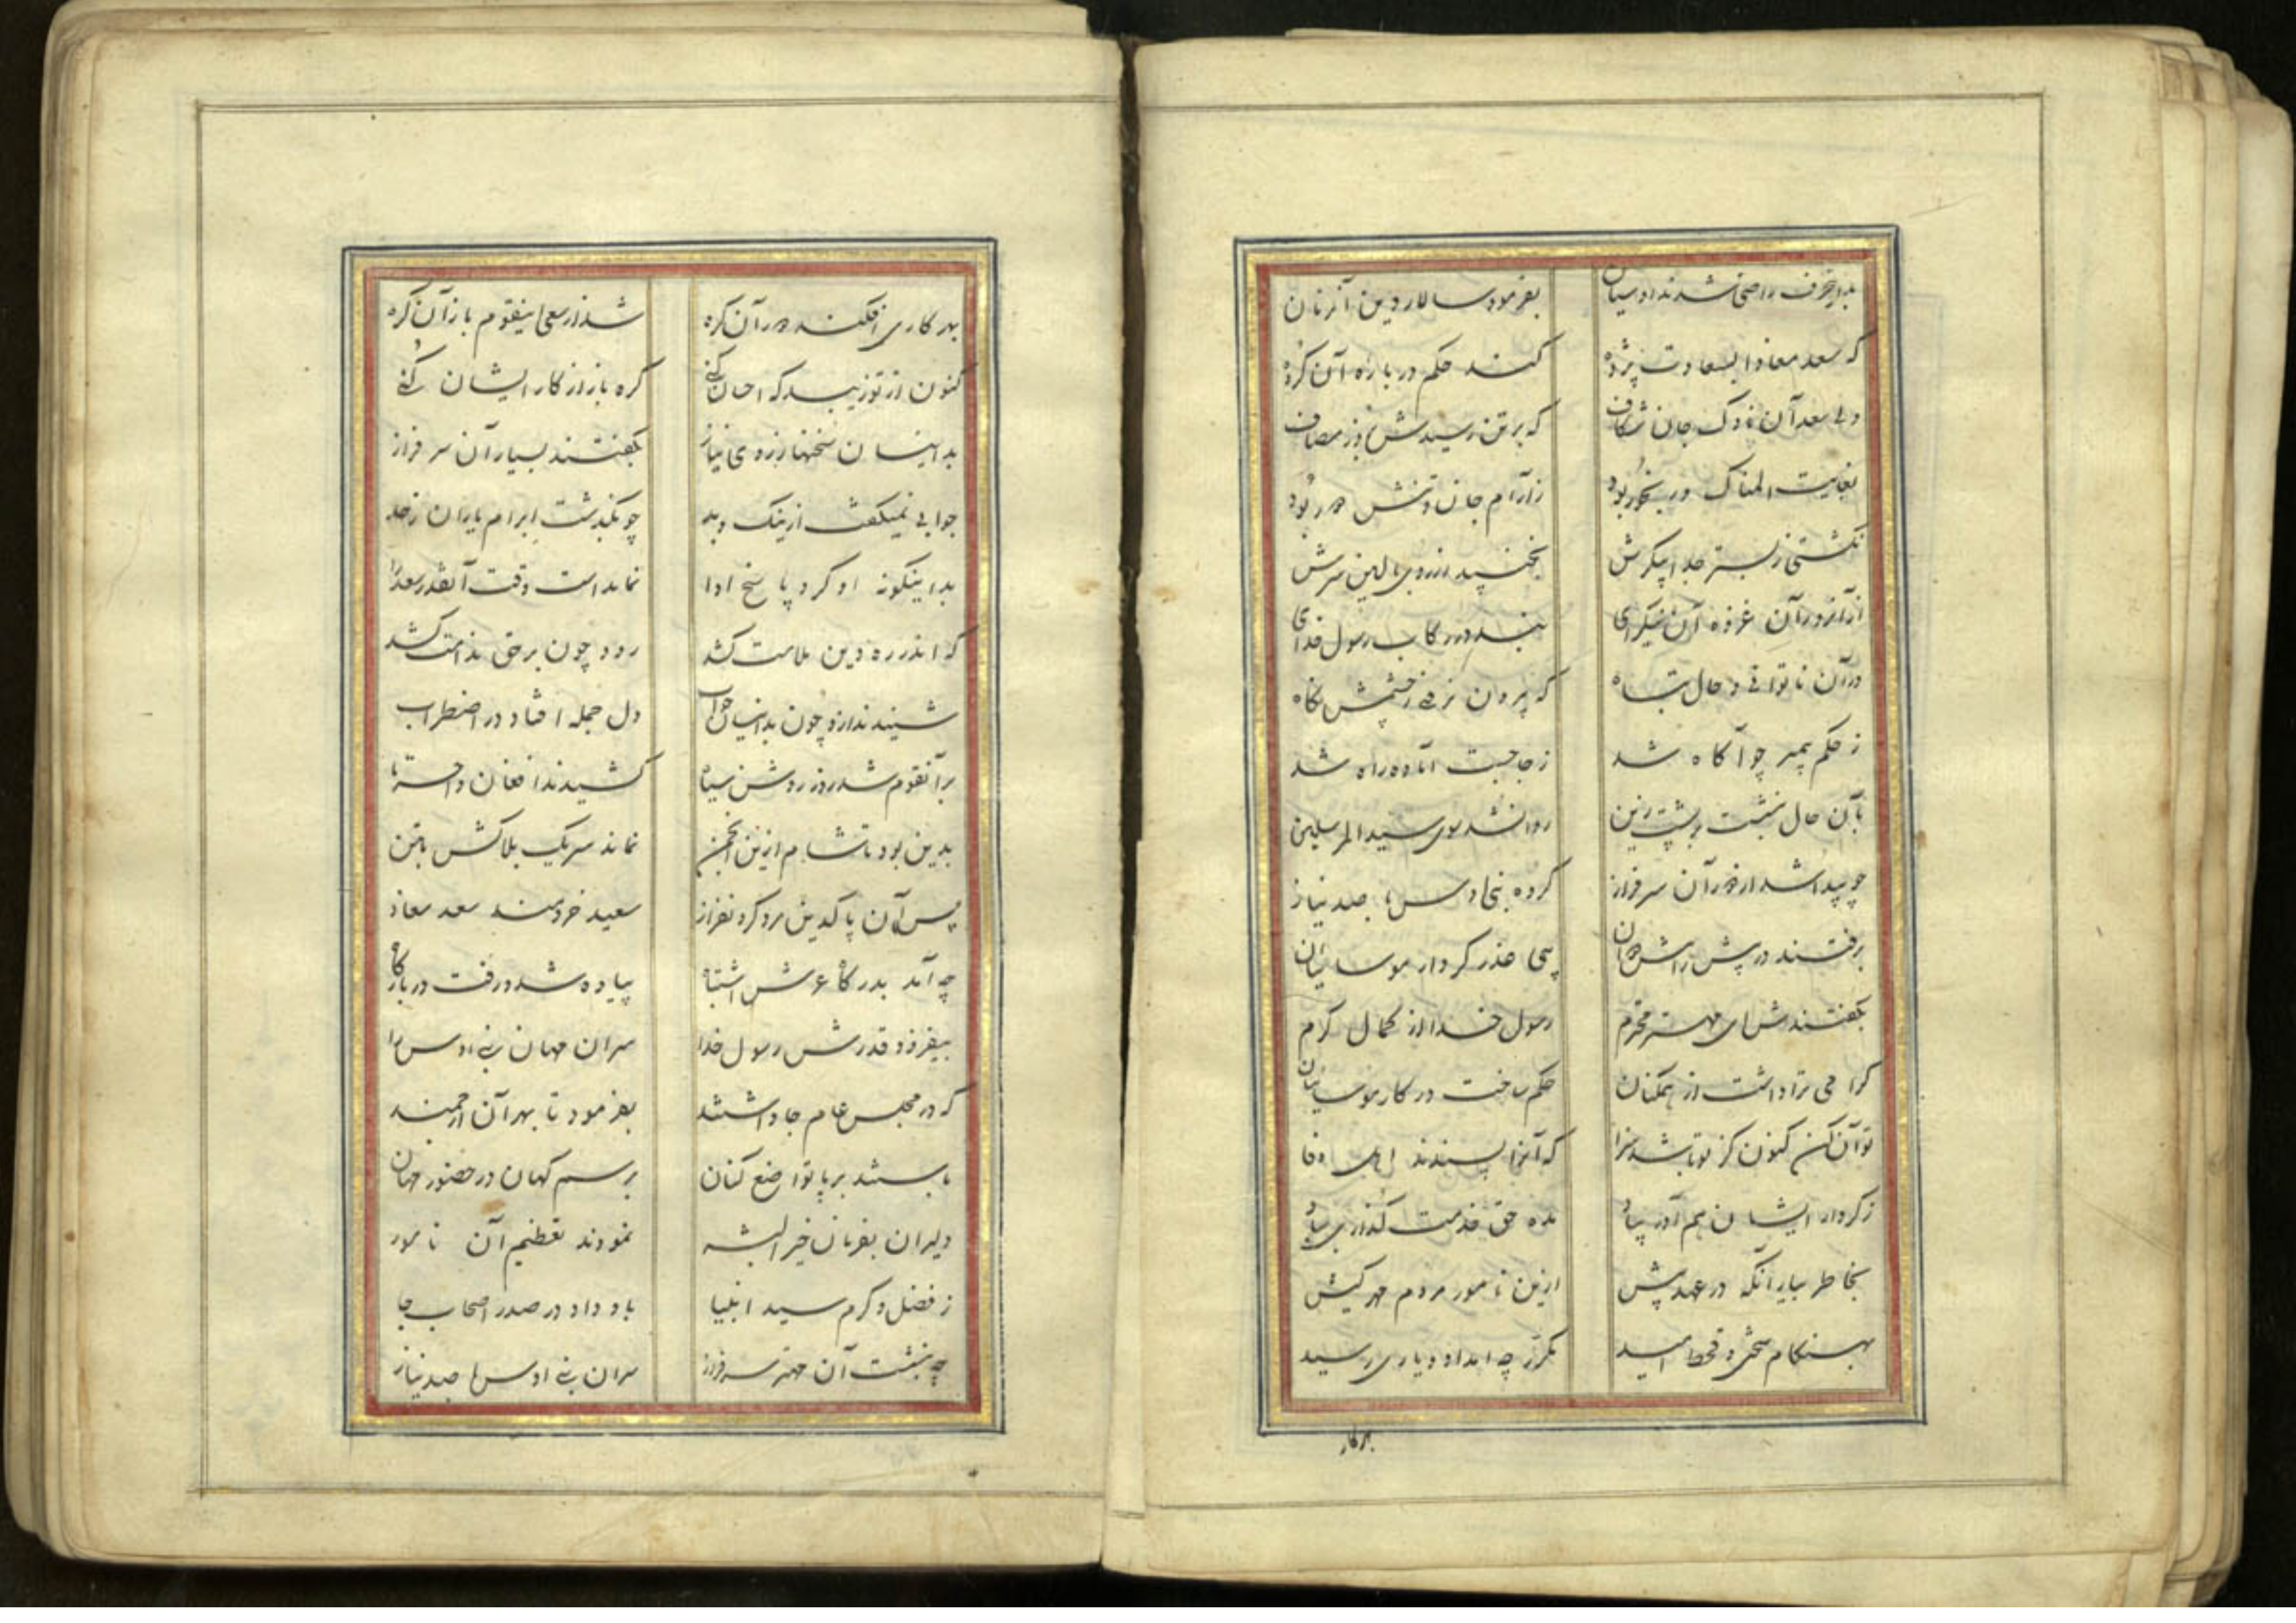 بدین حرف راضی شدند اوسیان بفرمود سالار دین آنزمان
که سعد معاذ سعادت پژوه کند حکم در باره آن گروه
ولی سعد آن ناوک جان شکاف که بر تن رسیدش بروز مصاف
بغایت المناک و رنجور بود ز آرام جان و تنش دور بود
نگشتی ز بستر جدا پیکرش نجنبیدی از روی بالین سرش
از آنرو در آن غزوه آن نیکرای نبد در رکاب رسول خدای
در آن ناتوانی و حال تباه که بیرون نرفتی ز چشمش نگاه
ز حکم پیمبر چو آگاه شد ز جا جست آماده راه شد
بآن حال بنشست بر پشت زین روانشد سوی سید المرسلین
چو پیدا شد از دور آن سرفراز گروه بنی اوس با صد نیاز
برفتند در پیش راهش دوان پی عذر کردار موسائیان
بگفتندش ای مهتر محترم رسول خدا از کمال کرم
گرامی ترا داشت از همگنان حکم ساخت در کار موسائیان
تو آن کن کنون کز تو باشد سزا که آنرا پسندند اهل وفا
ز کردار ایشان هم آور بیاد مده حق خدمت گذاری بباد
بخاطر بیار آنکه در عهد پیش ازین نامور مردم مهر کیش
بهنگام سختی و قحط امید مکرر چه امداد و یاری رسید
بر کار
بهر کاری افکند دور آن گره شد از سعی اینقوم باز آن گره
کنون از تو زیبد که احسان کنی گره باز از کار ایشان کنی
بدانسان سخنها ز روی نیاز بگفتند بسیار آن سرفراز
جوابی نمیگفت از نیک و بد چو بگذشت ابرام یاران ز حد
بداینگونه او کرد پاسخ ادا نمانداست وقت آنقدر سعد را
که اندر ره دین ملامت کشد رود چون بر حق ندامت کشد
شنیدند ازو چون بدانسان جواب دل جمله افتاد در اضطراب
برآنقوم شد روز روشن سیاه کشیدند افغان و احسرتا
بدین بود تا شام ازین انجمن نماند سر یک بلاکش بتن
پس آن پاکدین مرد گردنفراز سعید خردمند سعد معاذ
چه آمد بدرگاه عرش اشتباه پیاده شد و رفت در بارگاه
بیفزود قدرش رسول خدا سران مهان بنی اوس را
که در مجلس عام جا داشتند بفرمود تا بهر آن ارجمند
بایستند بر پا تواضع کنان برسم کهان در حضور مهان
دلیران بفرمان خیر البشر نمودند تعظیم آن نامور
ز فضل و کرم سید انبیا باو داد در صدر اصحاب جا
چه بنشست آن مهتر سرفراز سران بنی اوس با صد نیاز